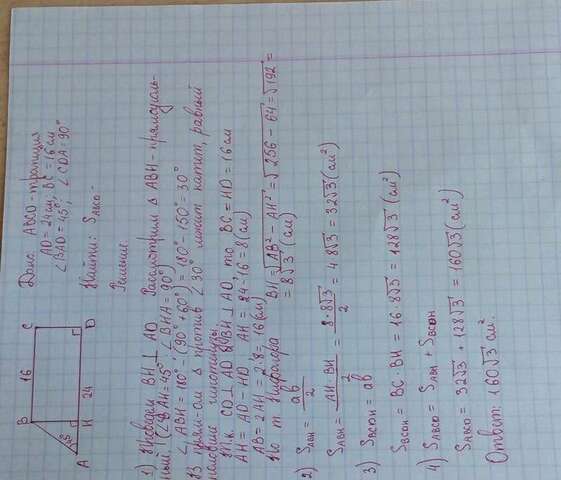 Дано: ABCD - трапеция
AD = 24 см, BC = 16 см
∠BAD = 45°, ∠CDA = 90°
Найти: S ABCD -
Решение
B 16 C
45°
A H 24 D
1) Проведем BH ⊥ AD Рассмотрим Δ ABH - прямоуголь-
ный (∠BAH = 45°, ∠BHA = 90°)
∠ABH = 180° - (90° + 60°) = 180° - 150° = 30°
В прям-ом Δ против ∠30° лежит катет, равный
половине гипотенузы
Т.к. CD ⊥ AD, BH ⊥ AD, то BC = HD = 16 см
AH = AD - HD AH = 24 - 16 = 8 (см)
AB = 2AH = 2·8 = 16 (см)
По т. Пифагора BH = √AB² - AH² = √256 - 64 = √192 =
= 8√3 (см)
2) S ABH = ab/2
S ABH = AH · BH/2 = 8·8√3/2 = 4·8√3 = 32√3 (см²)
3) S BCDH = ab
S BCDH = BC · BH = 16 · 8√3 = 128√3 (см²)
4) S ABCD = S ABH + S BCDH
S ABCD = 32√3 + 128√3 = 160√3 (см²)
Ответ: 160√3 см².